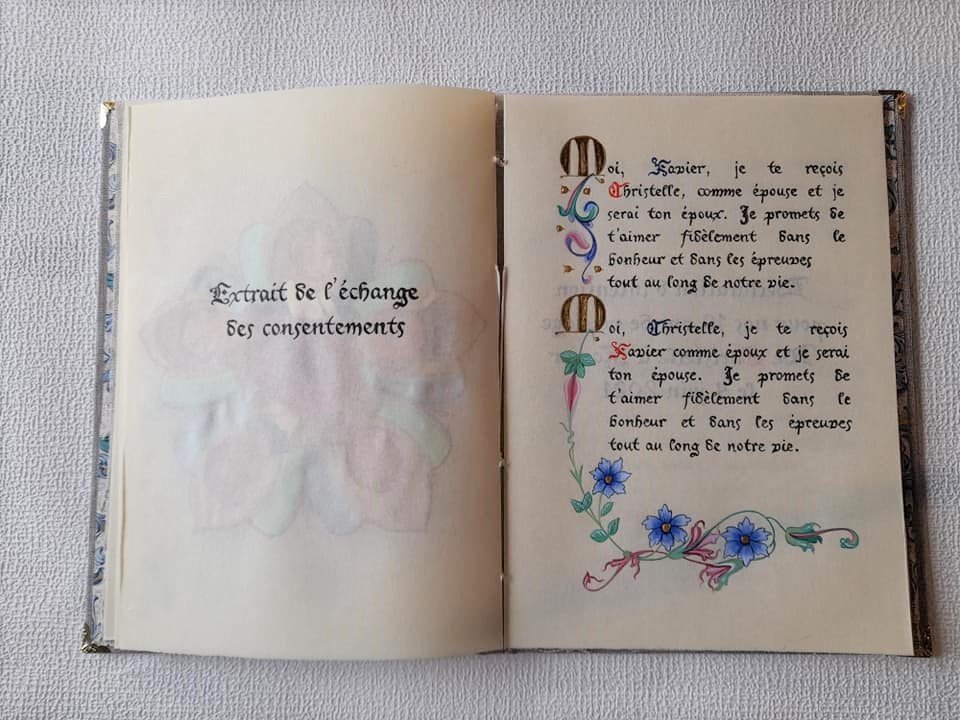 Extrait de l'échange
des consentements
Moi, Xavier, je te reçois
Christelle, comme épouse et je
serai ton époux. Je promets de
t'aimer fidèlement dans le
bonheur et dans les épreuves
tout au long de notre vie.
Moi, Christelle, je te reçois
Xavier comme époux et je serai
ton épouse. Je promets de
t'aimer fidèlement dans le
bonheur et dans les épreuves
tout au long de notre vie.